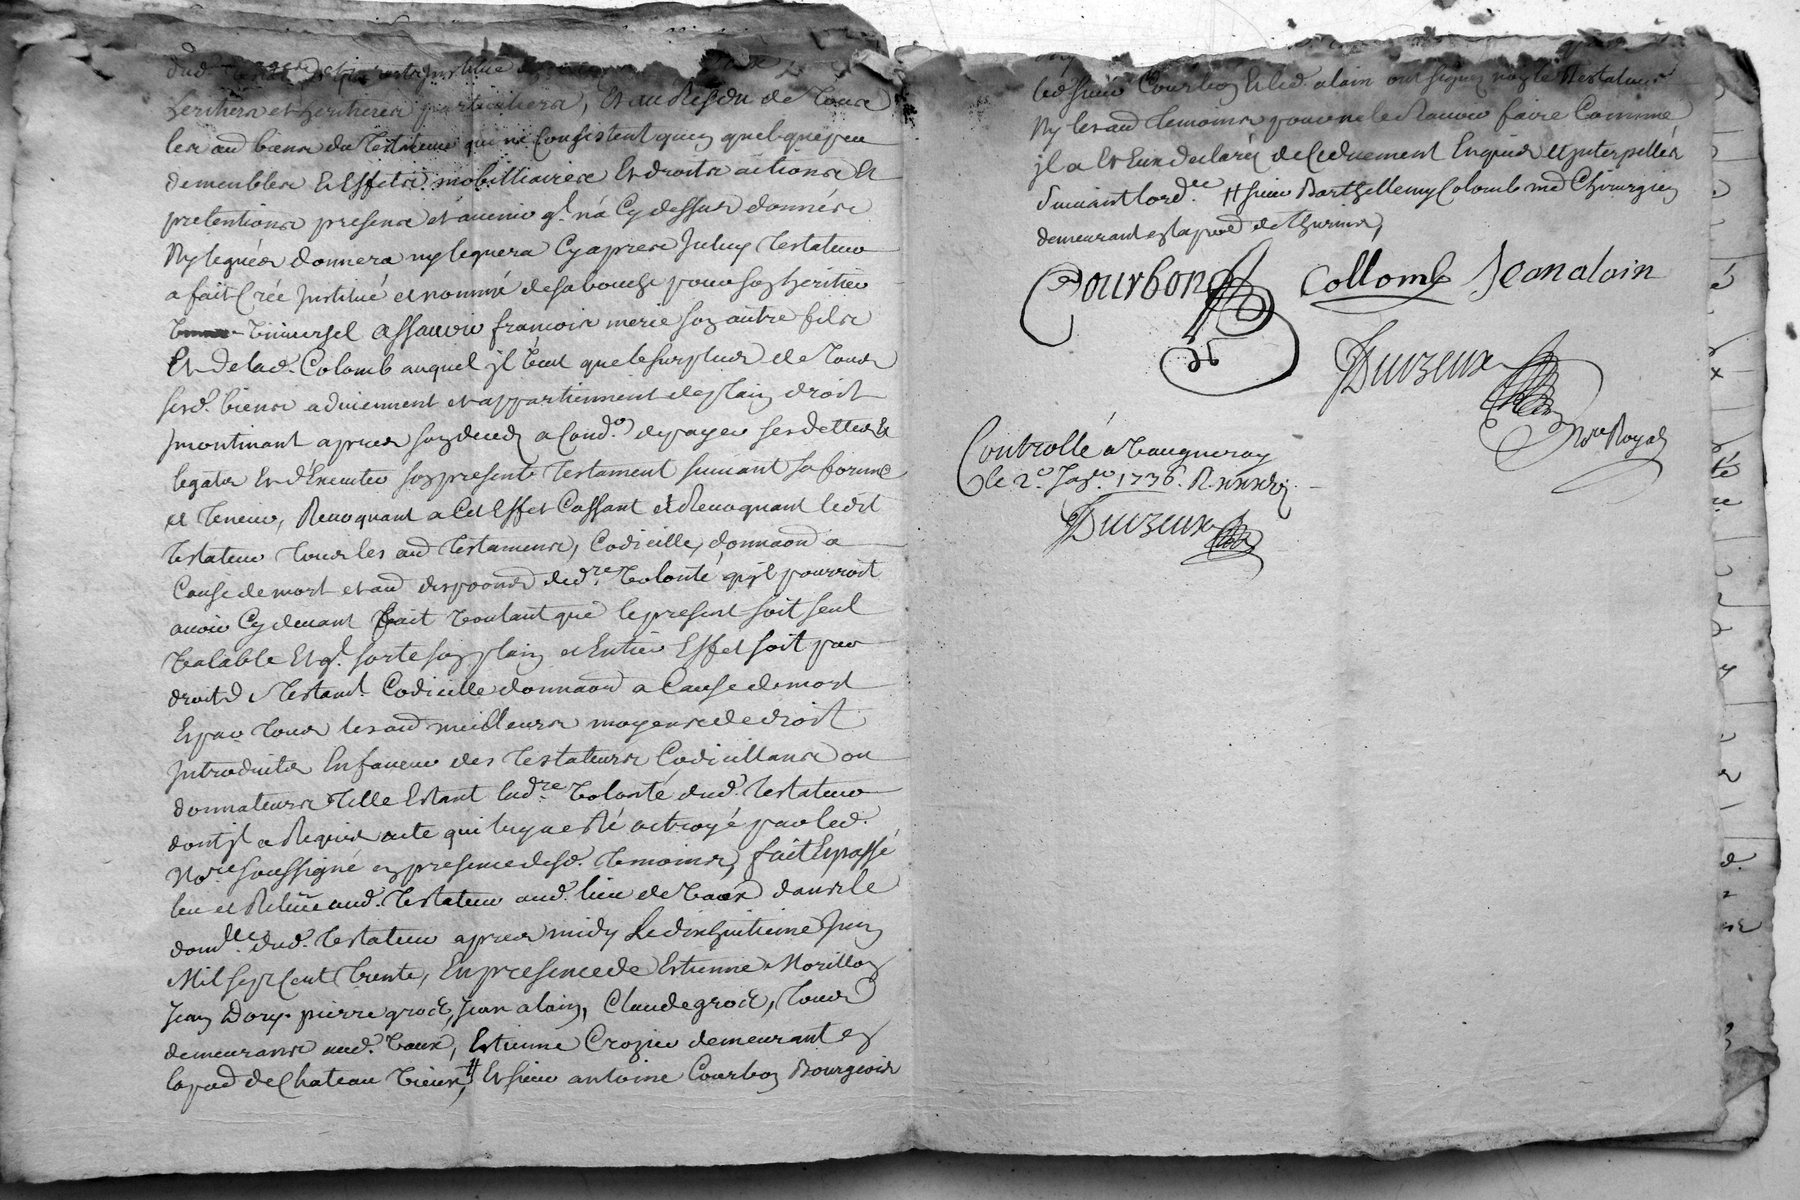 heritiers et heritieres particuliers, Et au Residu de Tous
les aud biens du Testateur qui ne Consistent quen quelque peu
de meubles Et Effets mobilliaires Et droits actions Et
pretentions presens et avenir ql. n'a Cy dessus donnés
Ny legués donnera ny leguera Cy apres Jceluy Testateur
a fait Créé Jnstitué et nommé de sa bouche pour son heritier
Universel assavoir françois merie son autre fils
Et de lad. Colomb auquel jl Veut que le surplus de Tous
sesd. biens adviennent et appartiennent de plain droit
jncontinant apres son deced a Condon. de payer ses dettes Et
legats Et d'Executer son present Testament suivant sa forme
et Teneur, Revoquant a Cet Effet Cassant et Revoquant ledit
Testateur Tous les aud Testamens, Codicille, donnaons a
Cause de mort et aud dispoons de dre. Volonté qu'jl pourroit
avoir Cy devant fait Voulant que le present soit seul
Valable Et ql. sorte son plain et Entier Effet soit par
droit de Testamt. Codicille donnaon a Cause de mort
Et par Tous les aud meilleurs moyens de droit
Jntroduits En faveur des Testateurs Codicillans ou
donnateurs Telle Estant la dre. Volonté dud. Testateur
dont jl a Requis acte qui luy a eté octroyé par led.
Nore soussigné en presence desd. Temoins, fait Et passé
leu et Releüe aud. Testateur aud. lieu de Vaux dans le
domlle. dud. Testateur apres midy Le dixhuitieme Juin
Mil sept Cent Trente, En presence de Estienne Morillon
Jean Dory. pierre groct, Jean alain, Claude groct, Tous
demeurans aud. Vaux, Estienne Crozier demeurant en
la psse de Chateau Vieux, # Et sieur antoine Courbon Bourgeois
led sieur Courbon Et led. alain ont signés non le Testateur
Ny les aud Temoins pour ne le sçavoir faire Comme
jl a Et Eux declaré de Ce duement Enquis Et Jnterpellés
suivant lord.ce # sieur Barthellemy Colomb md Chirurgien
demeurant en la psse de Thurins,
Courbon Collomb Jean alain
Duvzeux
Nre Royal
Controllé a Vaugneray
le 2e. Janr. 1736. R.
Duvzeux